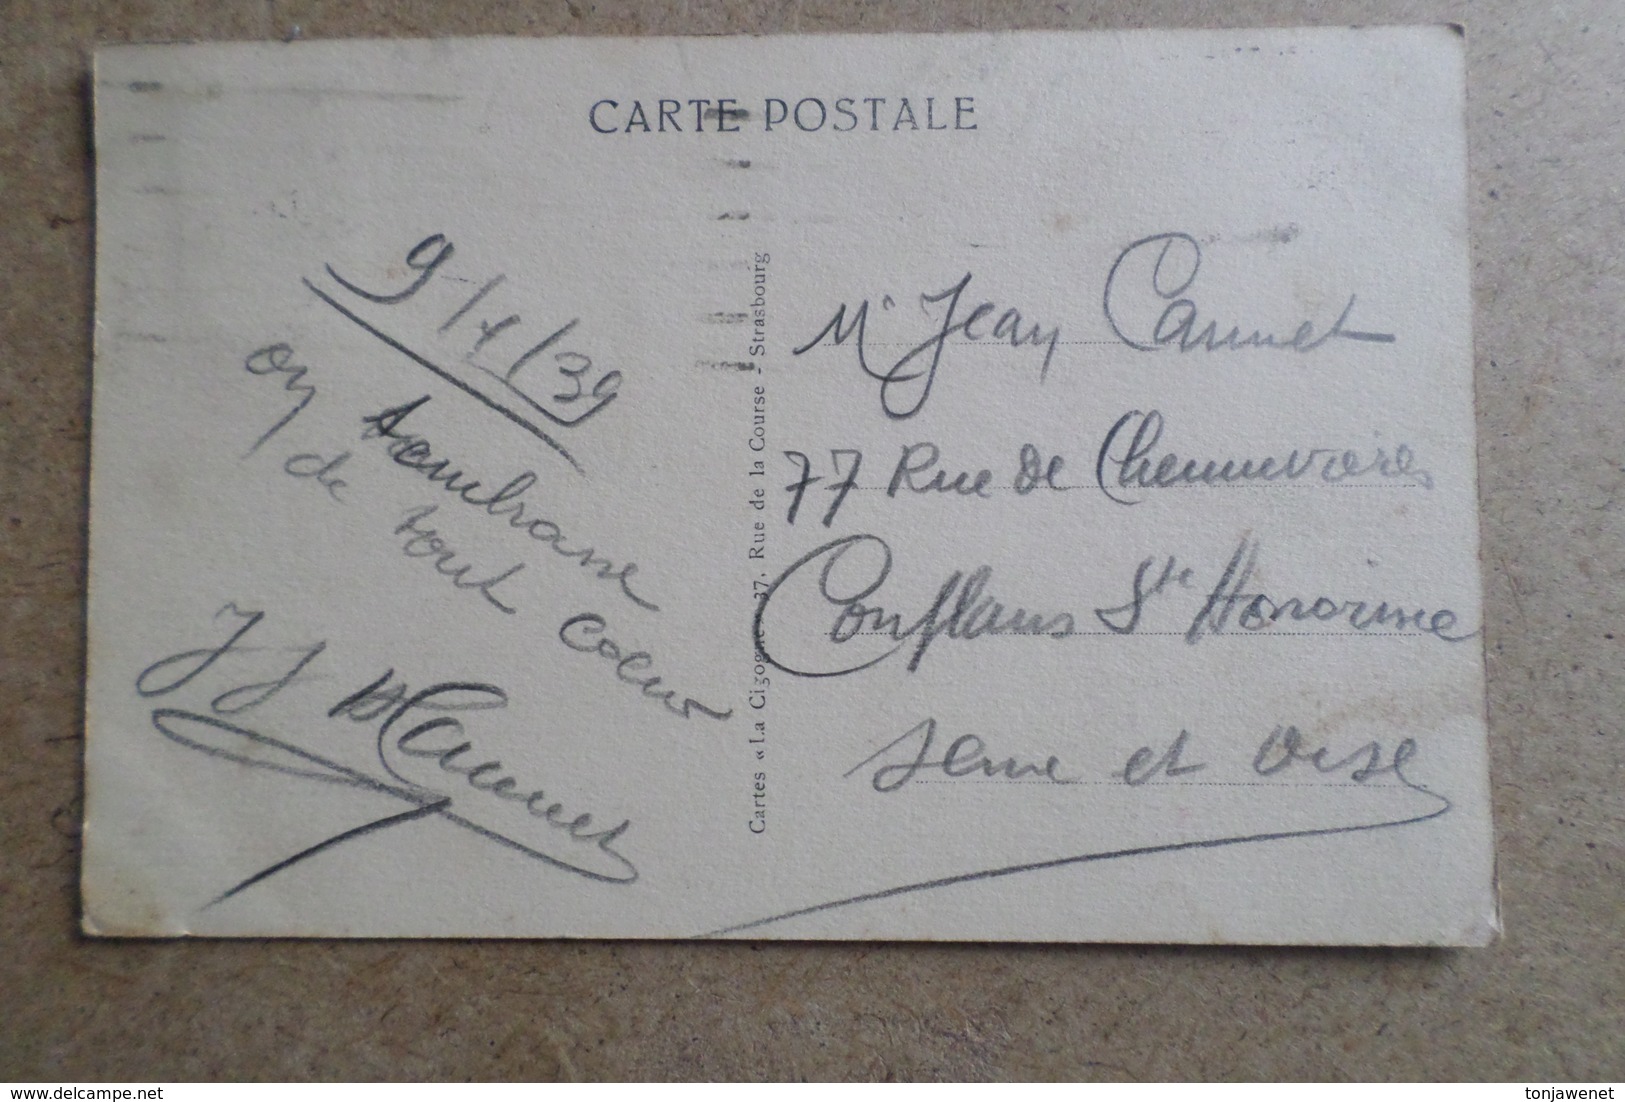 CARTE POSTALE
9/4/39
on t'embrasse
de tout coeur
Cannet
Cartes « La Cigogne » 37, Rue de la Course - Strasbourg
Mr Jean Cannet
77 Rue de Chennevières
Conflans Ste Honorine
Seine et Oise
tonjawenet